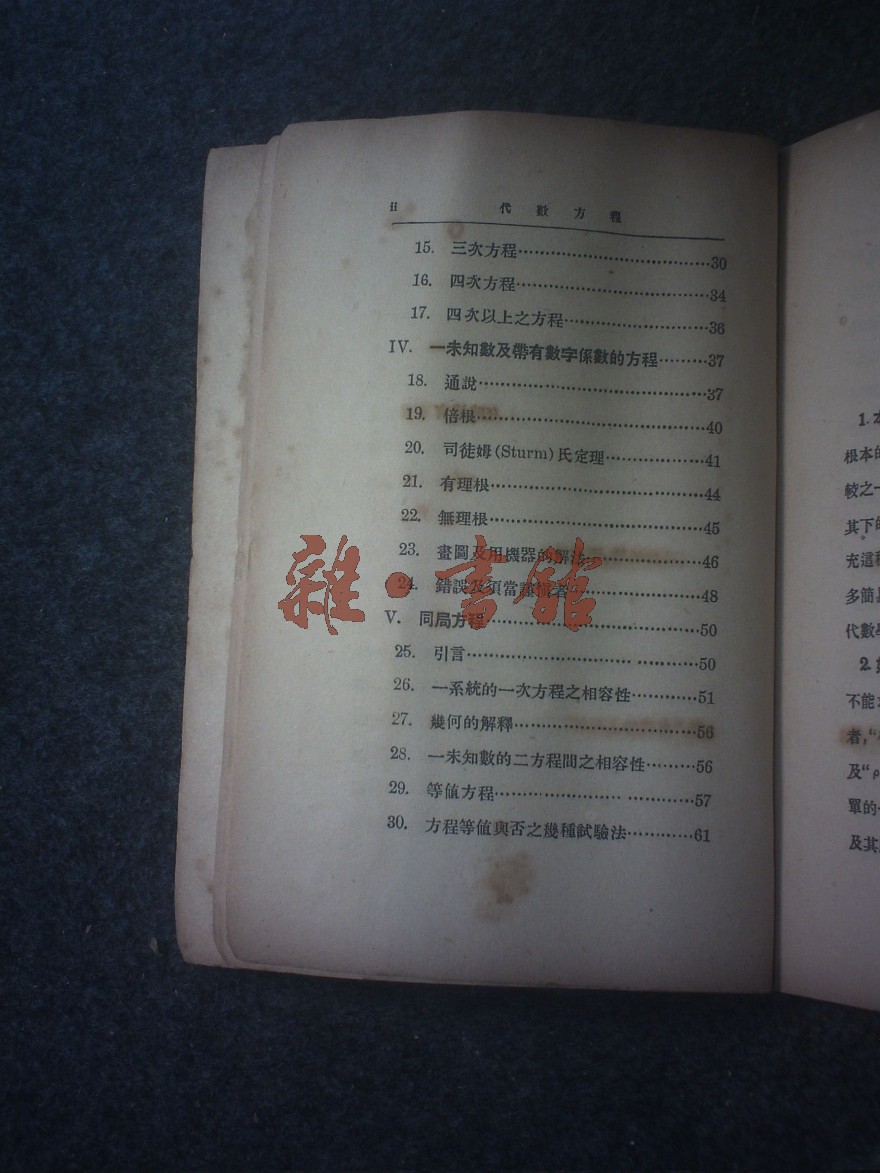 ii 代數方程
15. 三次方程……30
16. 四次方程……34
17. 四次以上之方程……36
IV. 一未知數及帶有數字係數的方程……37
18. 通說……37
19. 倍根……40
20. 司徒姆(Sturm)氏定理……41
21. 有理根……44
22. 無理根……45
23. 畫圖及用機器的解法……46
24. 錯誤及須當謹慎者……48
V. 同局方程……50
25. 引言……50
26. 一系統的一次方程之相容性……51
27. 幾何的解釋……56
28. 一未知數的二方程間之相容性……56
29. 等値方程……57
30. 方程等値與否之幾種試驗法……61
雜·書館
1. 本
根本的
較之一
其下的
充這種
多簡
代數學
2.
不能
者,“
及“ρ
單的
及其